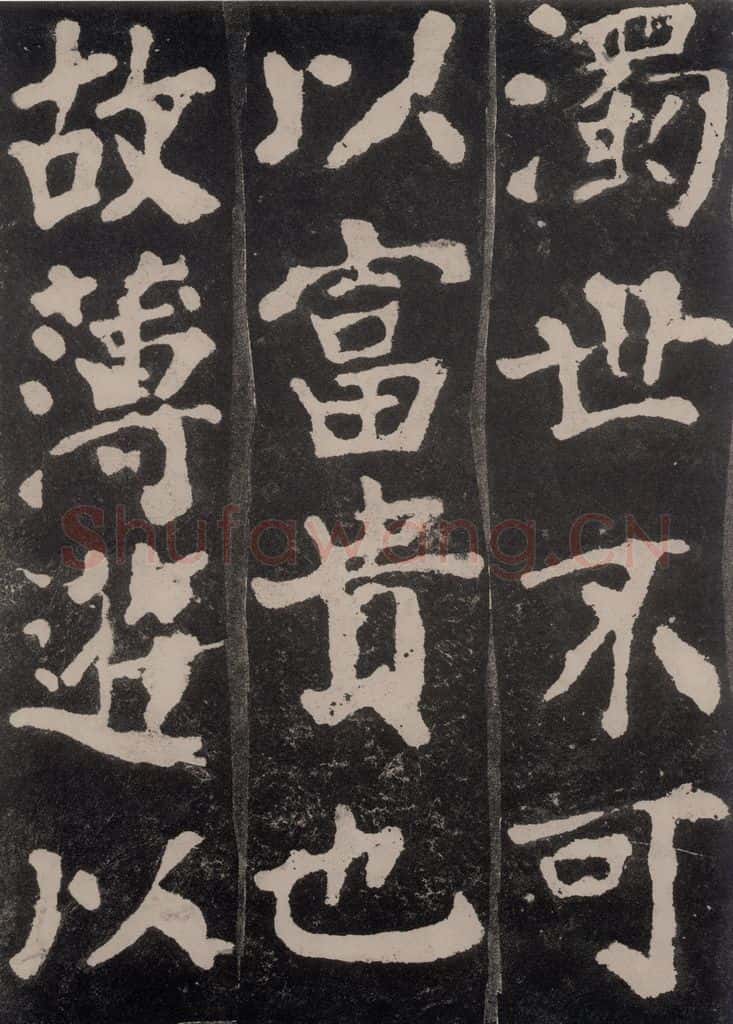 濁世不可
以富貴也
故薄遊以
Shufawang.CN